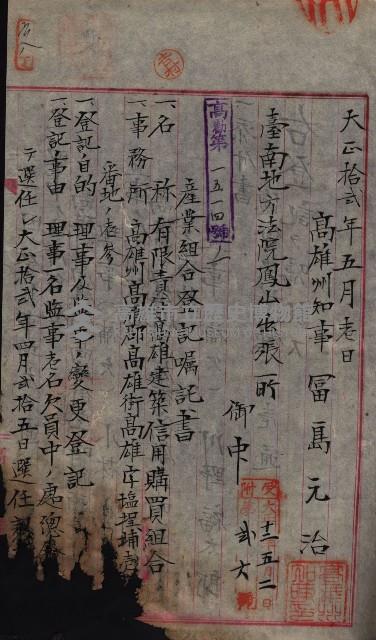 大正拾弐年五月壱日
高雄州知事冨島元治
臺南地方法院鳳山出張所
御中
受大十二五二日
附第弐六號
高勸第一五一四號ノ一
産業組合登記嘱託書
一、名稱 有限責任高雄建築信用購買組合
一、事務所 高雄州高雄郡高雄街高雄字塩埕埔壱
番地ノ壱参
一、登記ノ目的 理事及監事ノ變更登記
一、登記ノ事由 理事一名監事壱名欠員中ノ處總會
ニテ選任シ大正拾弐年四月弐拾五日選任
高雄市立歷史博物館